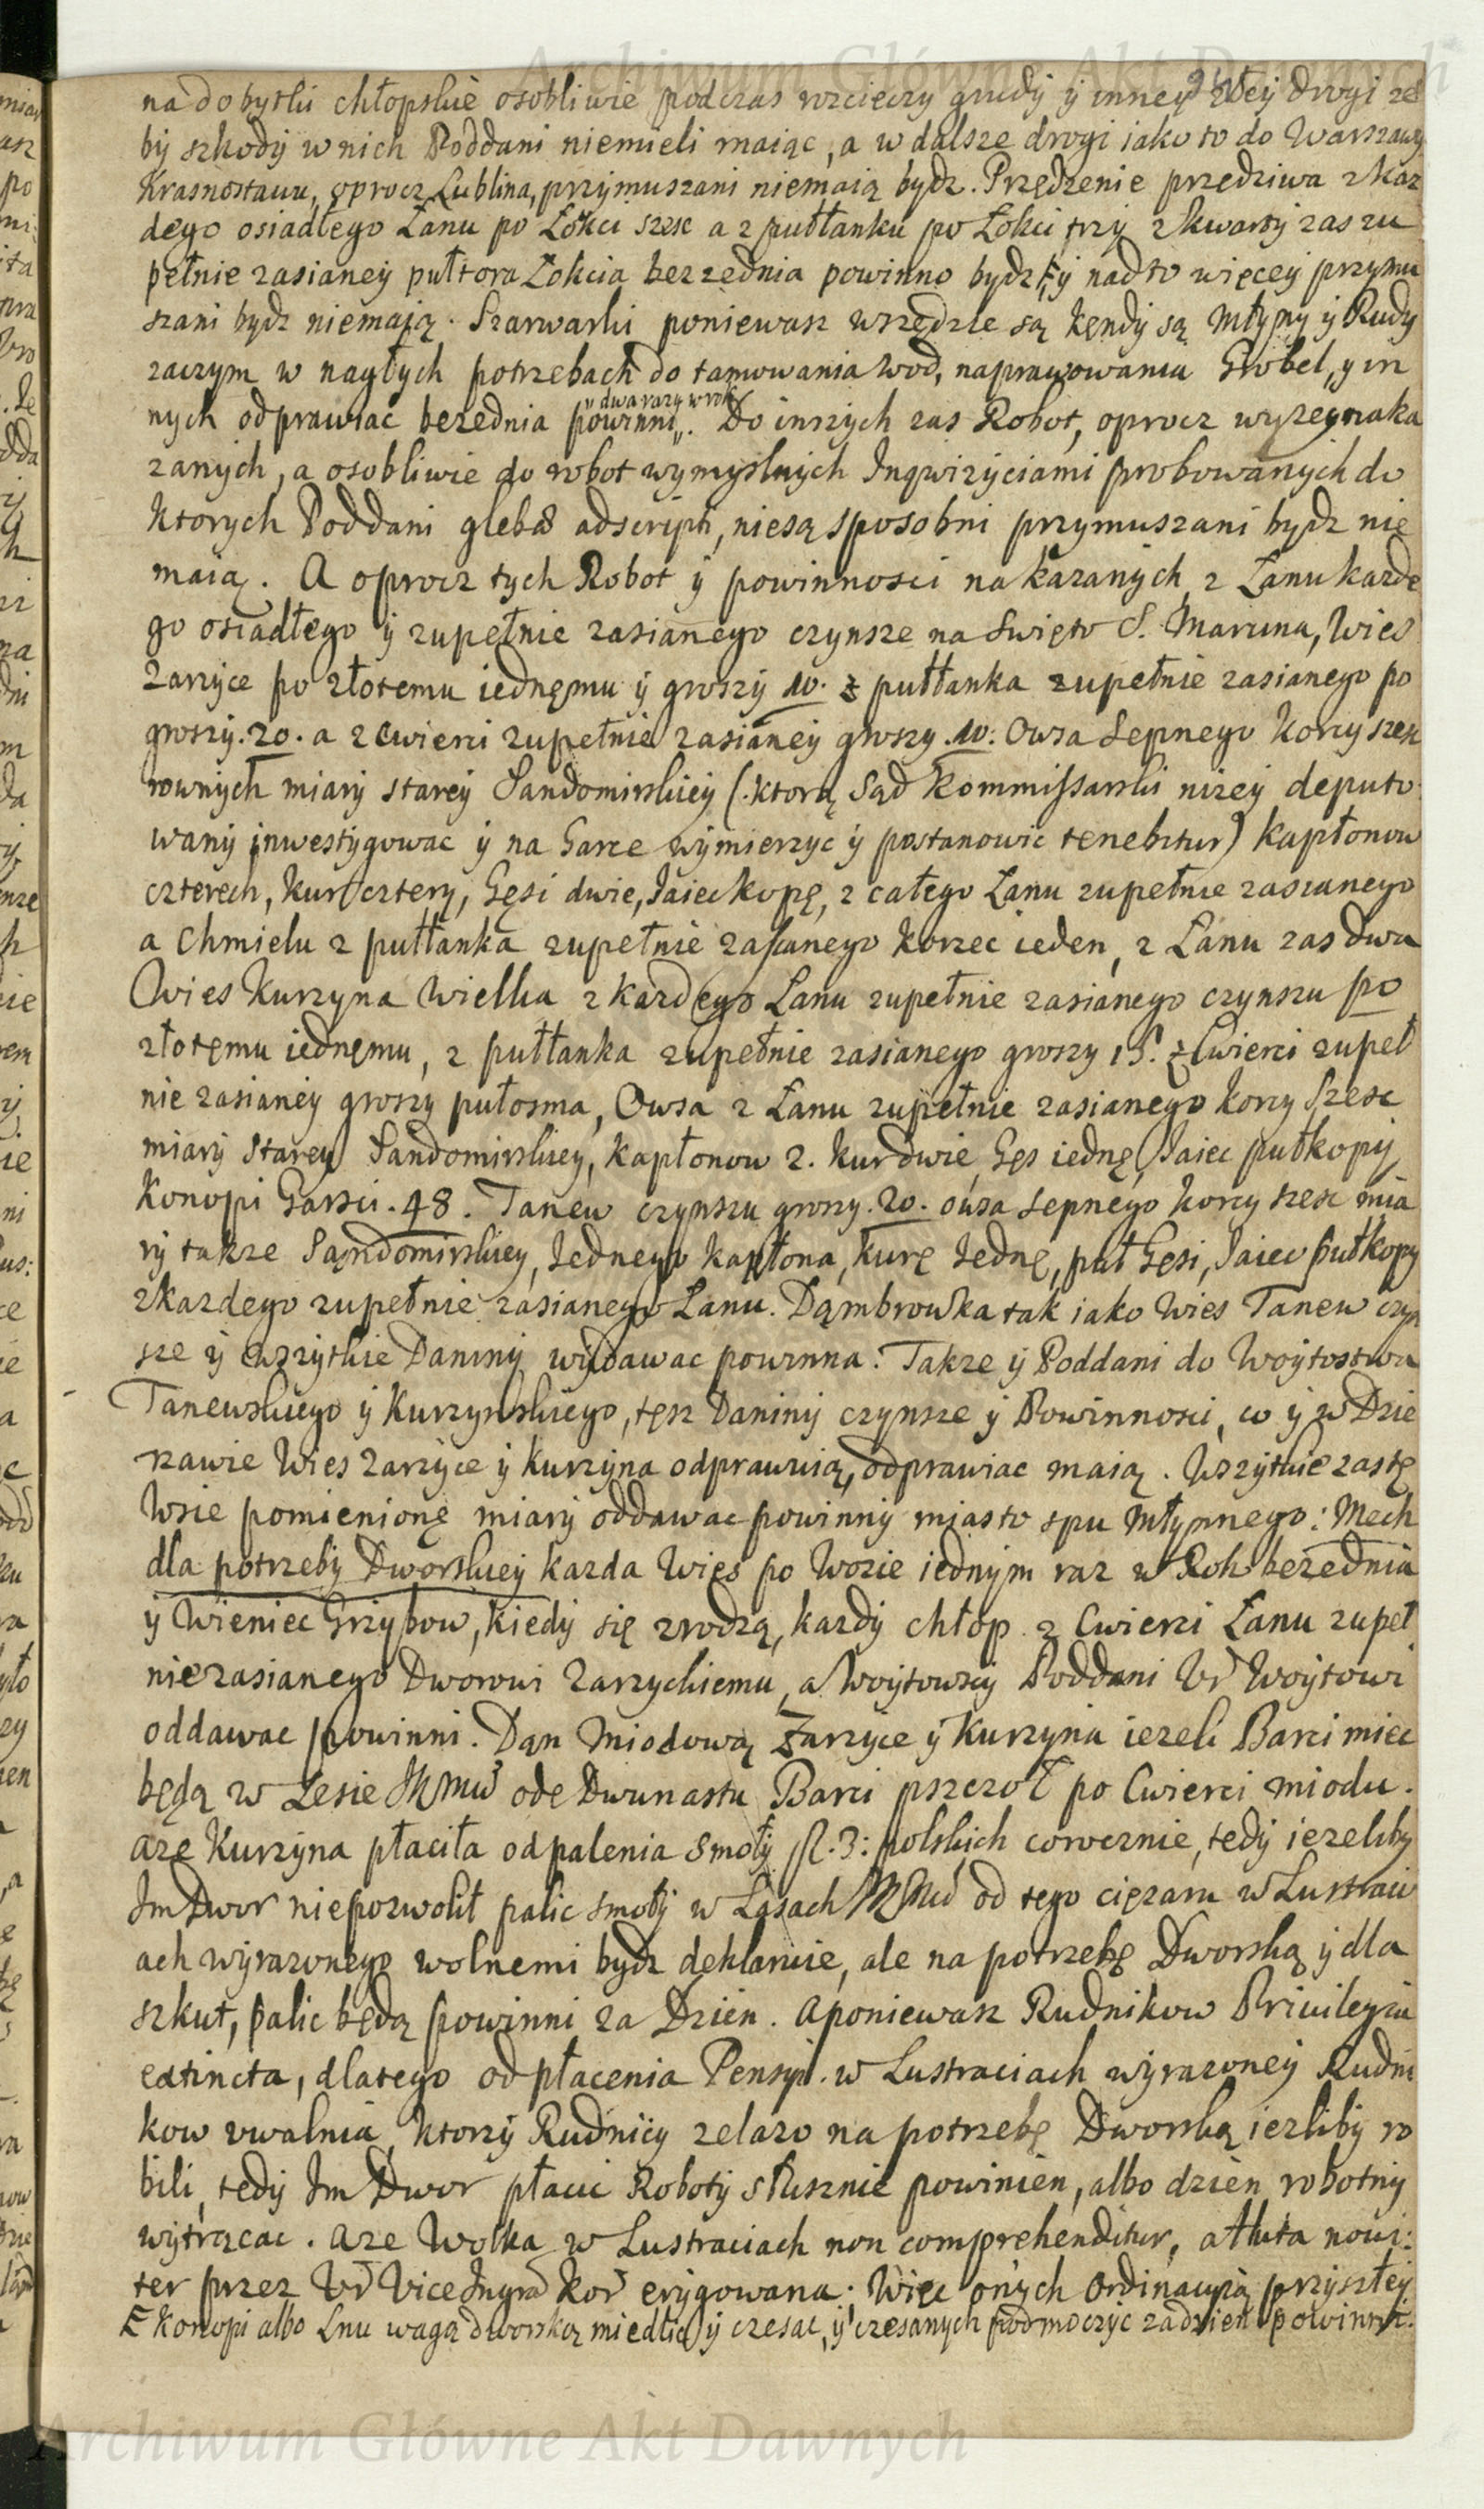 Archiwum Główne Akt Dawnych
na dobytki chłopskie osobliwie podczas rozcieczy grudy y inney złey drogi ze
by szkody w nich Poddani niemieli maiąc, a w dalsze drogi iako to do Warszawy
Krasnostawu, oprocz Lublina, przymuszani niemaią bydz. Przędzenie przędziwa z kaz
dego osiadłego Łanu po Łokci szesc a z pułłanku po Łokci trzy z kwarty zas zu
pełnie zasianey pułtora Łokcia bezednia powinno bydz, y nadto więcey przymu
szani bydz niemaią. Szarwarki poniewasz wszędzie są kędy są Młyny y Rudy
zaczym w nagłych potrzebach do tamowania wod, naprawowania Grobel, y in
nych odprawiac bezednia powinni „dwa razy w rok„. Do inszych zas Robot, oprocz wyzey naka
zanych, a osobliwie do robot wymyslnych Inqwizyciami probowanych do
ktorych Poddani glebæ adscripti, niesą sposobni przymuszani bydz nie
maią. A oprocz tych Robot y powinnosci nakazanych z Łanu kazde
go osiadłego y zupełnie zasianego czynsze na Swięto S. Marcina, Wies
Zarzyce po złotemu iednemu y groszy 10. z pułłanka zupełnie zasianego po
groszy .20. a z cwierci zupełnie zasianey groszy .10. Owsa Sepnego korcy szesc
rownych miary starey Sandomirskiey (ktorą Sąd Kommissarski nizey deputo
wany inwestygowac y na Garce wymierzyc y postanowic tenebitur) kapłonow
czterech, kur cztery, Gęsi dwie, Jaiec kopę, z całego Łanu zupełnie zasianego
a Chmielu z pułłanka zupełnie zasianego korzec ieden, z Łanu zas dwa
Wies Kurzyna Wielka z kazdego Łanu zupełnie zasianego czynszu po
złotemu iednemu, z pułłanka zupełnie zasianego groszy 15. z Cwierci zupeł
nie zasianey groszy pułosma, Owsa z Łanu zupełnie zasianego korcy Szesc
miary Starey Sandomirskiey, kapłonow 2. kur dwie, Gęs iednę, Jaiec pułkopy
Konopi Garsci .48. Tanew czynszu groszy .20. owsa Sepnego korcy szesc mia
ry takze Sandomirskiey, Jednego kapłona, kurę Jednę, puł Gęsi, Jaiec pułkopy
z kazdego zupełnie zasianego Łanu. Dąmbrowka tak iako Wies Tanew czyn
sze y wszytkie Daniny wydawac powinna. Takze y Poddani do Woytostwa
Tanewskiego y Kurzynskiego, tesz Daniny czynsze y Powinnosci, co y w Dzie
rzawie Wies Zarzyce y Kurzyna odprawuią, odprawiac maią. Wszytkie zas tę
Wsie pomienione miary oddawac powinny miasto spu Młynnego: Mech
dla potrzeby Dworskiey kazda Wies po Wozie iednym raz w Rok bezednia
y Wieniec Grzybow, kiedy się zrodzą, kazdy chłop z Cwierci Łanu zupeł
nie zasianego Dworowi Zarzyckiemu, a Woytowscy Poddani Ur Woytowi
oddawac powinni. Dan Miodową Zarzyce y Kurzyna iezeli Barci miec
będą w Lesie JKMci ode Dwunastu Barci pszczoł po Cwierci miodu.
aze Kurzyna płaciła od palenia Smoły fl. 3: polskich corocznie, tedy iezeliby
Im Dwor niepozwolił palic smoły w Lasach JKMci od tego cięzaru w Lustraci
ach wyrazonego wolnemi bydz deklaruie, ale na potrzebę Dworską y dla
szkut, palic będą powinni za Dzien. Aponiewasz Rudnikow Privilegia
extincta, dlatego od płacenia Pensyi w Lustraciach wyrazoney Rudni
kow uwalnia, ktorzy Rudnicy zelazo na potrzebę Dworską iezliby ro
bili, tedy Im Dwor płacic Roboty słusznie powinien, albo dzien robotny
wytrącac. Aze Wolka w Lustraciach non comprehenditur, a Huta novi:
ter przez Ur ViceJngra Kor erygowana. Więc onych Ordinacyią przyszłey
Konopi albo Lnu wagą dworską miedlic y czesac, y czesanych podmoczyc za dzien powinni.
Archiwum Główne Akt Dawnych